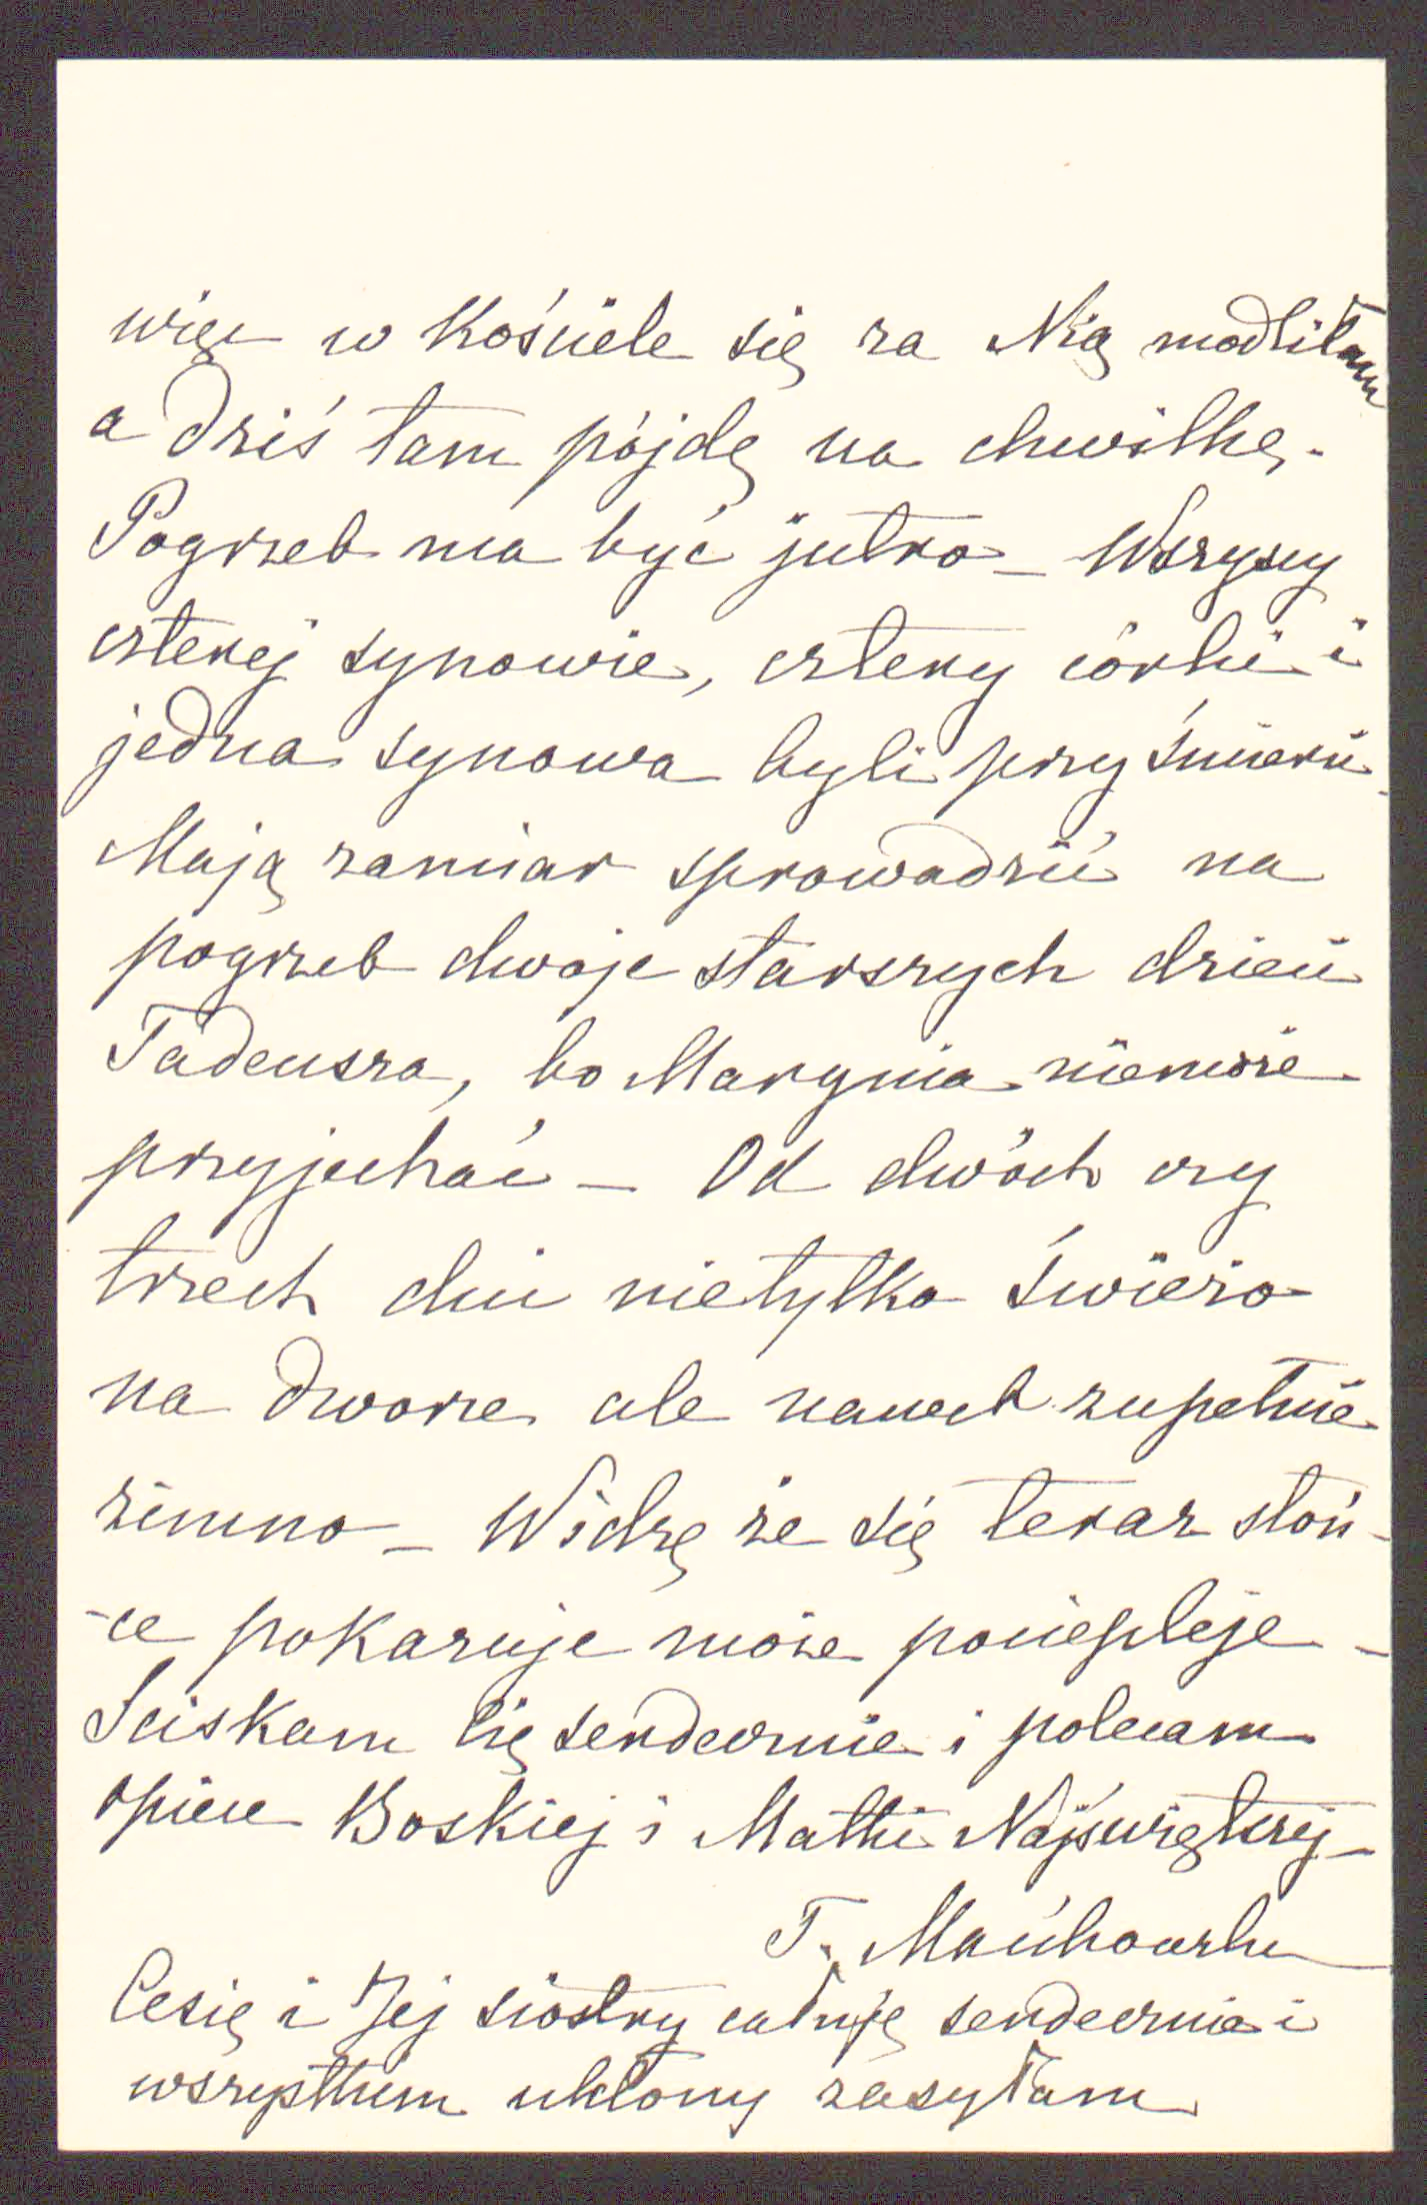 więc w Kościele się za Nią modliłam
a dziś tam pójdę na chwilkę.
Pogrzeb ma być jutro – Wszyscy
czterej synowie, cztery córki i
jedna synowa byli przy śmierci.
Mają zamiar sprowadzić na
pogrzeb dwoje starszych dzieci
Tadeusza, bo Marynia niemoże
przyjechać – Od dwóch czy
trzech dni nietylko świeżo
na dworze ale nawet zupełnie
zimno – Widzę że się teraz słoń-
-ce pokazuje może pociepleje –
Sciskam Cię serdecznie i polecam
opiece Boskiej i Matki Najświętszej –
T.
Cesię i Jej siostry całuję serdecznie i
wszystkim ukłony zasyłam